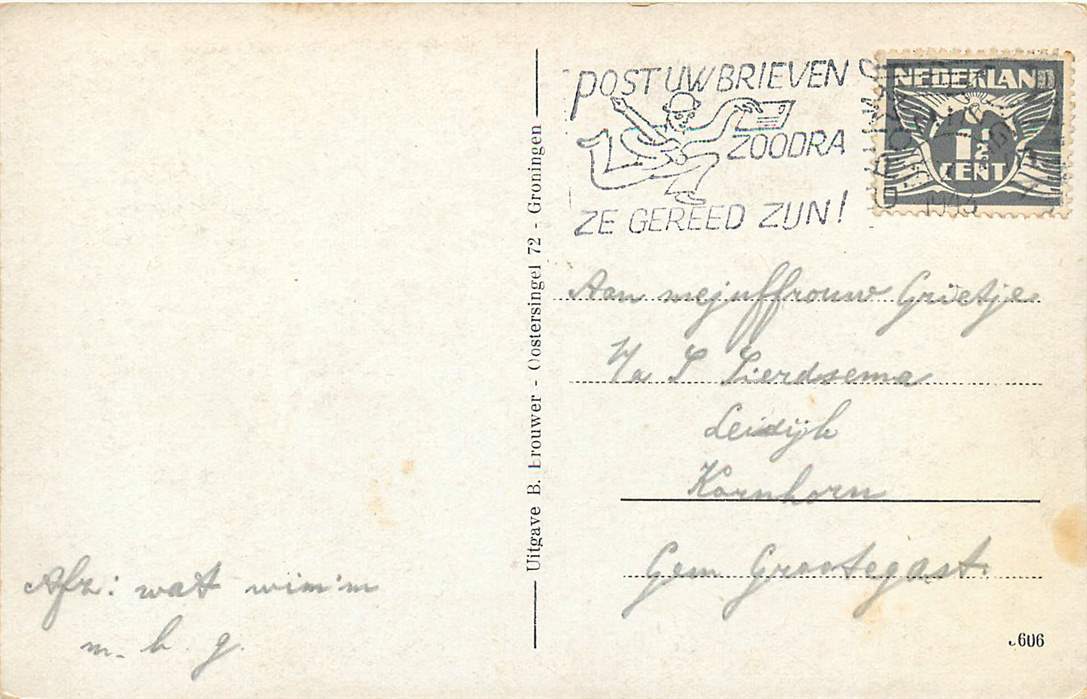 POST UW BRIEVEN
ZOODRA
ZE GEREED ZIJN!
NEDERLAND
1½
CENT
Uitgave B. Brouwer - Oostersingel 72 - Groningen
Aan mejuffrouw Grietje
S Sierdsema
Leidijk
Kornhorn
Gem Grootegast.
Afz: wat
m. h. g.
606